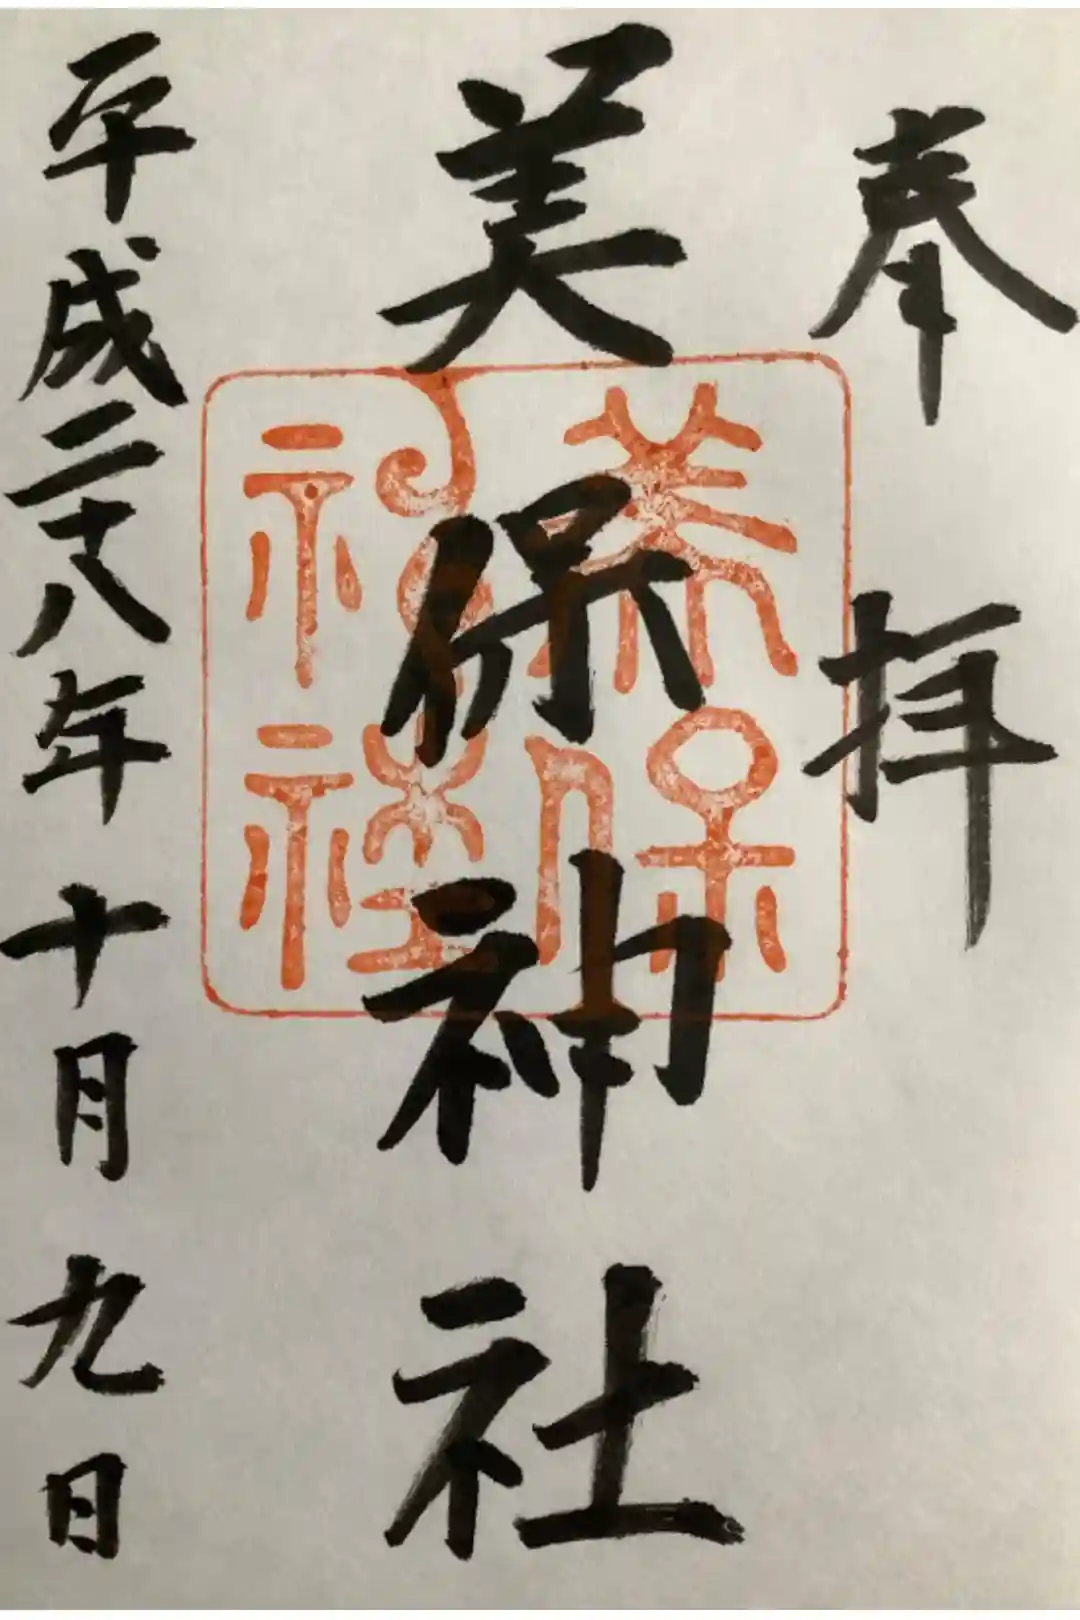 奉拝
美保神社
平成二十八年十月九日
美保
神社